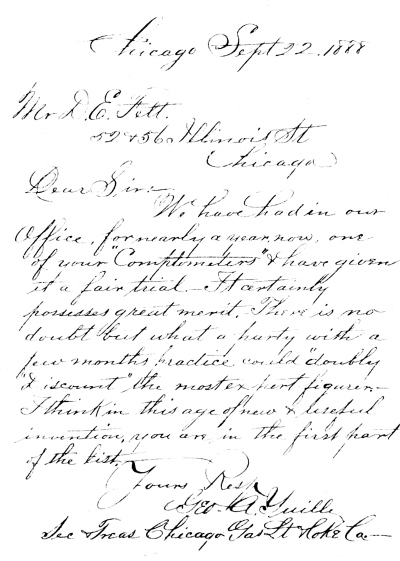 Chicago Sept 22. 1888
Mr D. E. Felt.
52 & 56 Illinois St
Chicago
Dear Sir:-
We have had in our
Office, for nearly a year now, one
of your "Comptometers" & have given
it a fair trial. It certainly
possesses great merit. There is no
doubt but what a party with a
few months practice could "doubly
discount" the most expert figurer.-
I think in this age of new & useful
invention, you are in the first part
of the list.-
Yours Resp
Geo A. Yuille
Sec & Treas Chicago Gas Lt & Coke Co-